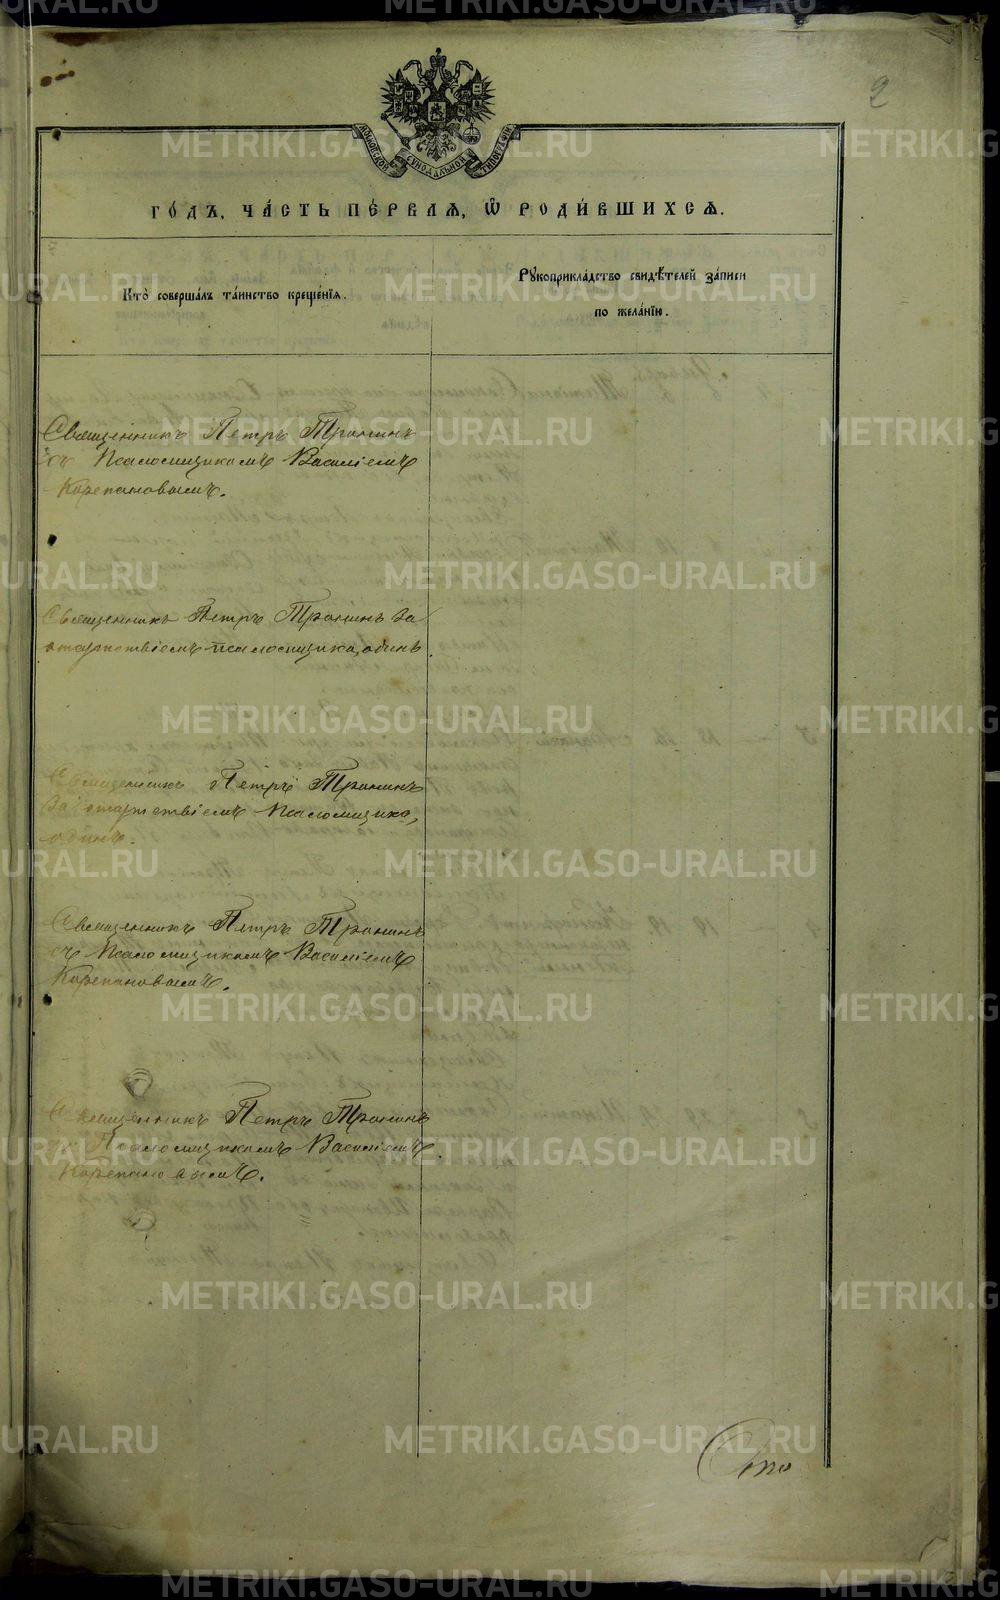 2
МОСКОВСКОЙ СѴНОДАЛЬНОЙ ТИПОГРАФІИ
ГО́ДЪ, ЧА́СТЬ ПЕ́РВАЯ, Ѽ РОДИ́ВШИХСЯ.
Кто̀ соверша́лъ та́инство креще́нїя.
Рукоприкла́дство свидѣ́телей за́писи
по жела́нїю.
Священникъ Петръ Тронинъ
съ Псаломщикомъ Василіемъ
Корепановымъ.
Священникъ Петръ Тронинъ за
отсутствіемъ псаломщика, одинъ
Священникъ Петръ Тронинъ
За отсутствіемъ Псаломщика,
одинъ.
Священникъ Петръ Тронинъ
съ Псаломщикомъ Василіемъ
Корепановымъ.
Священникъ Петръ Тронинъ
съ Псаломщикомъ Василіемъ
Корепановымъ.
METRIKI.GASO-URAL.RU